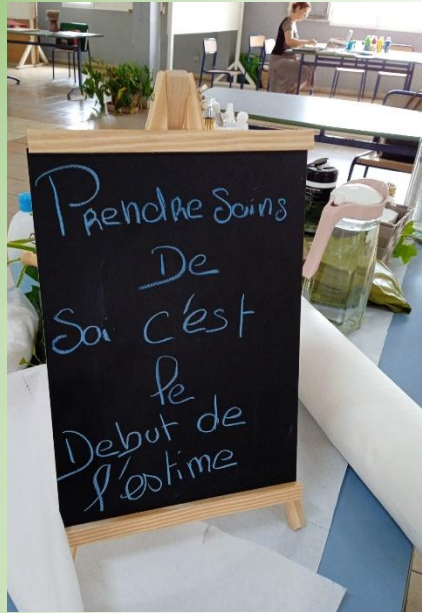 Prendre Soins
De
Soi c'est
le
Debut de
l'estime